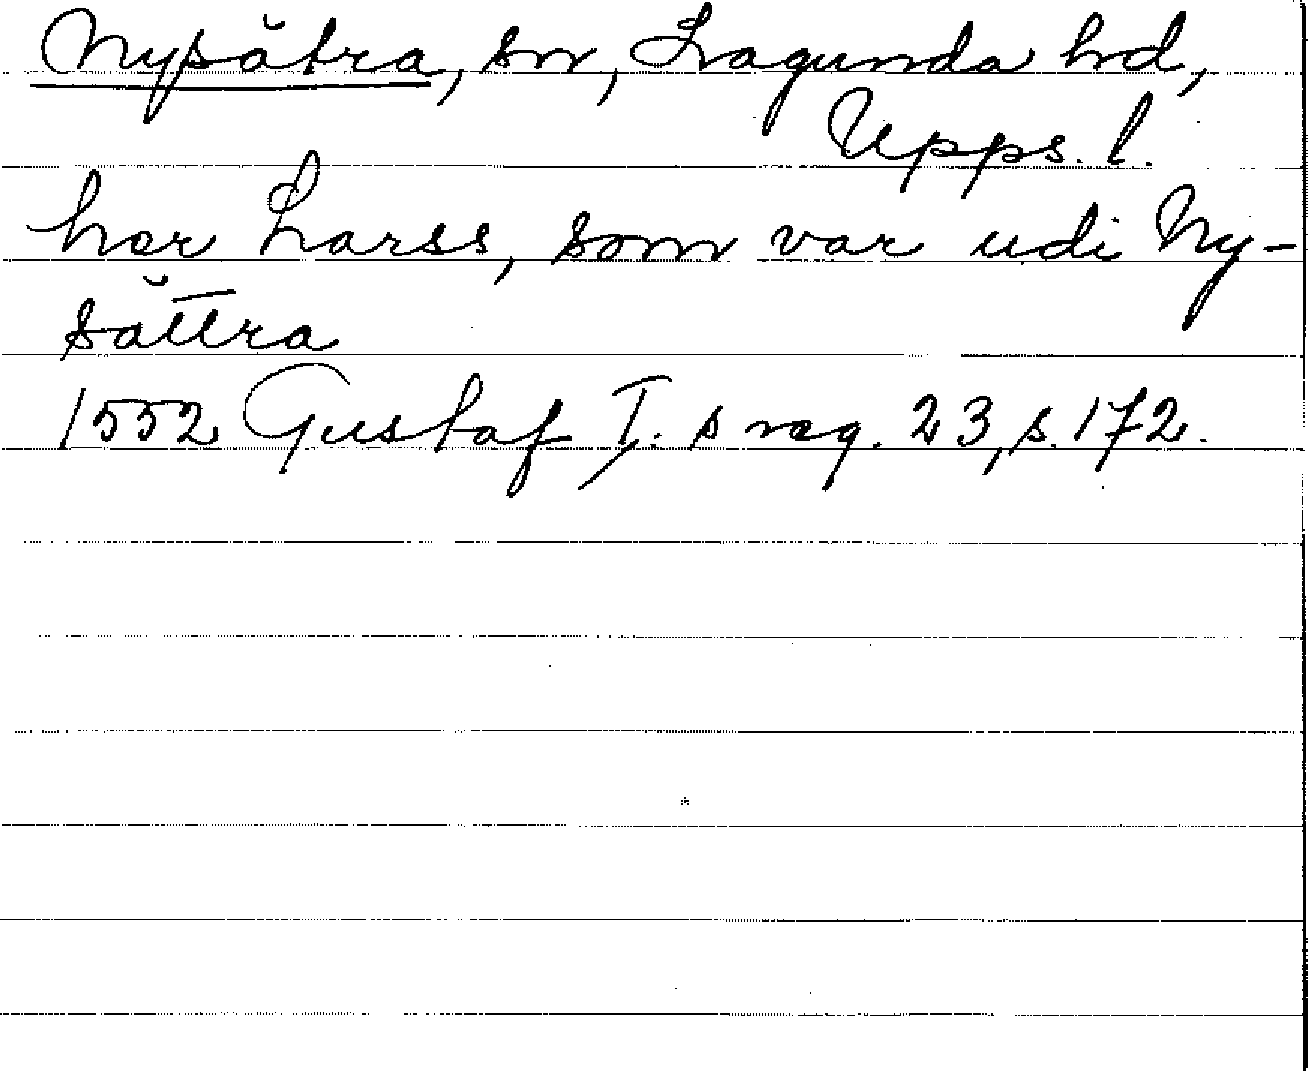 Nysätra, sn, Lagunda hd,
Upps. l.
her Larss, som var udi Ny-
sättra
1552 Gustaf I:s reg. 23, s. 172.